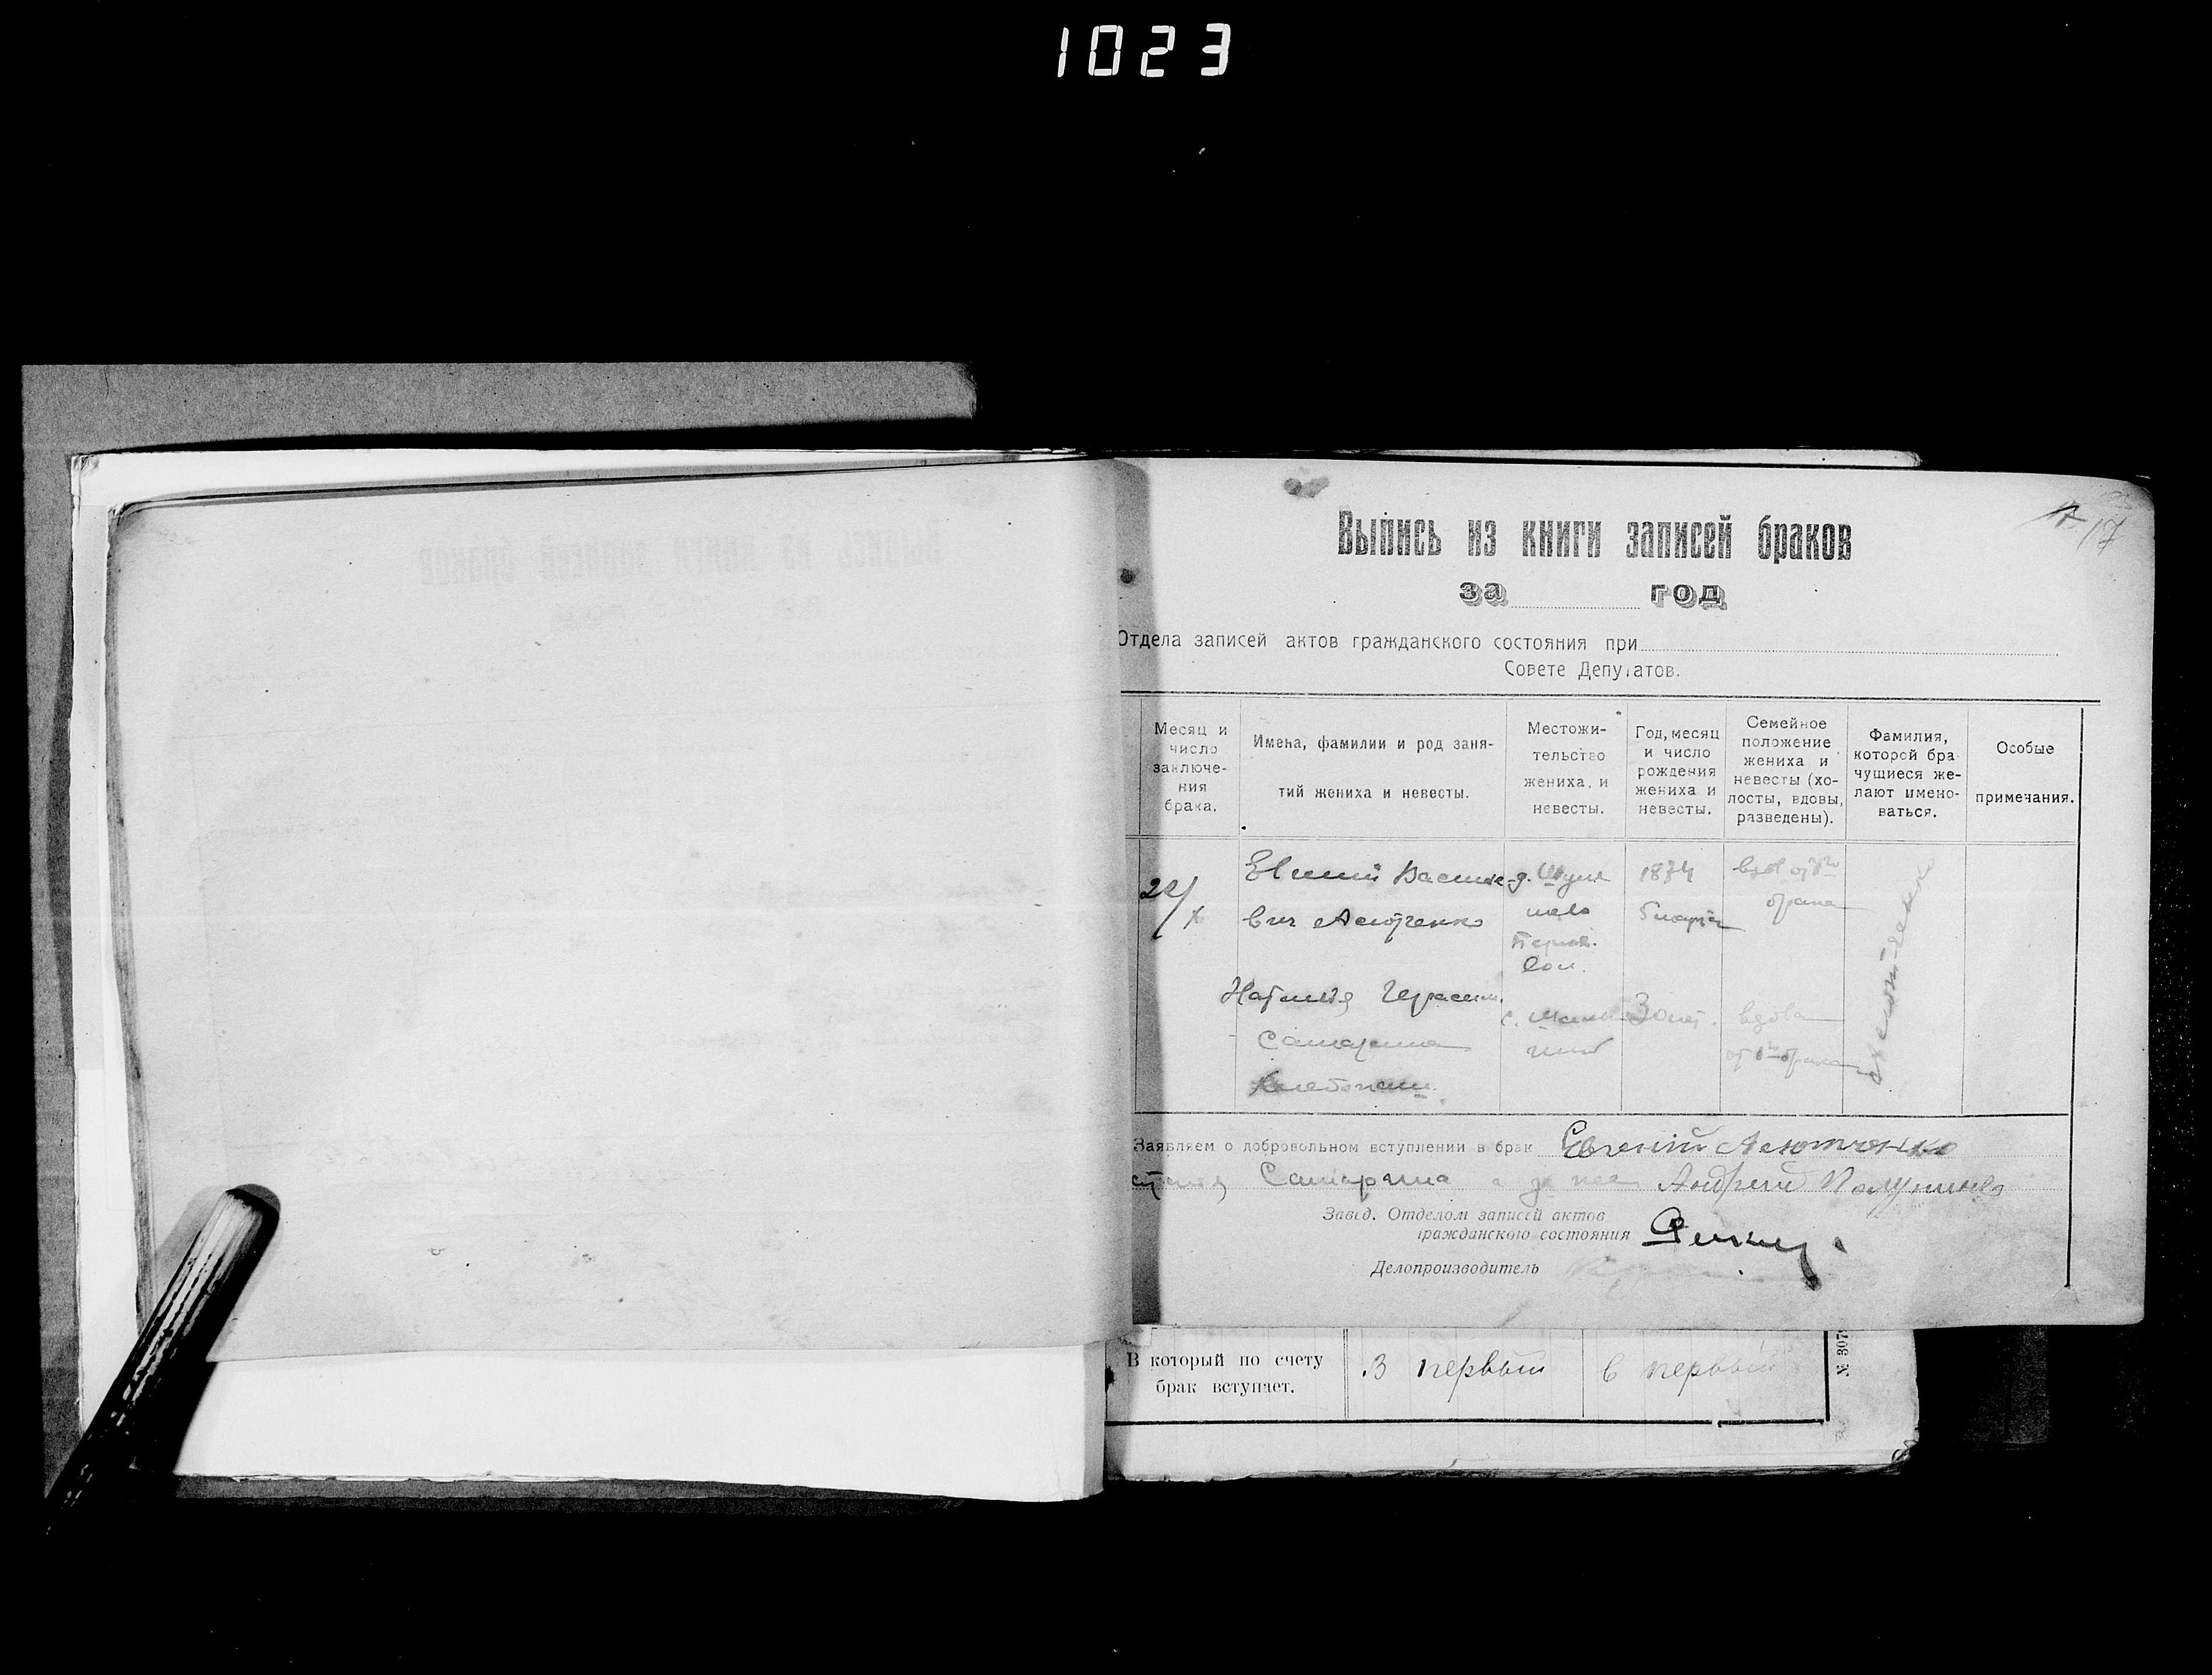 1023
17
Выпись из книги записей браков
за год
Отдела записей актов гражданского состояния при
Совете Депутатов.
Месяц и число заключе-ния брака.
Имена, фамилии и род заня-тий жениха и невесты.
Местожи-тельство жениха и невесты.
Год, месяц и число рождения жениха и невесты.
Семейное положение жениха и невесты (хо-лосты, вдовы, разведены).
Фамилия, которой бра-чущиеся же-лают имено-ваться.
Особые примечания.
22/X
Евгений Василье-
вич Асютченко
д.
вол.
1874
5 марта
вдов
брака
Наталья Герасим.
Самарина
Хлебопаш.
с.
30 лет.
вдова
от 1го брака
Заявляем о добровольном вступлении в брак Евгений Асютченко
Самарина а за нее Андрей
Завед. Отделом записей актов
гражданского состояния
Делопроизводитель
В который по счету
брак вступает.
В первый
в первый
№ 307